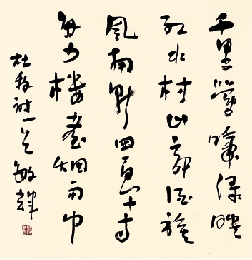 千里鶯啼绿映
红水村山郭酒旗
風南朝四百八十寺
多少樓臺烟雨中
杜牧詩一首